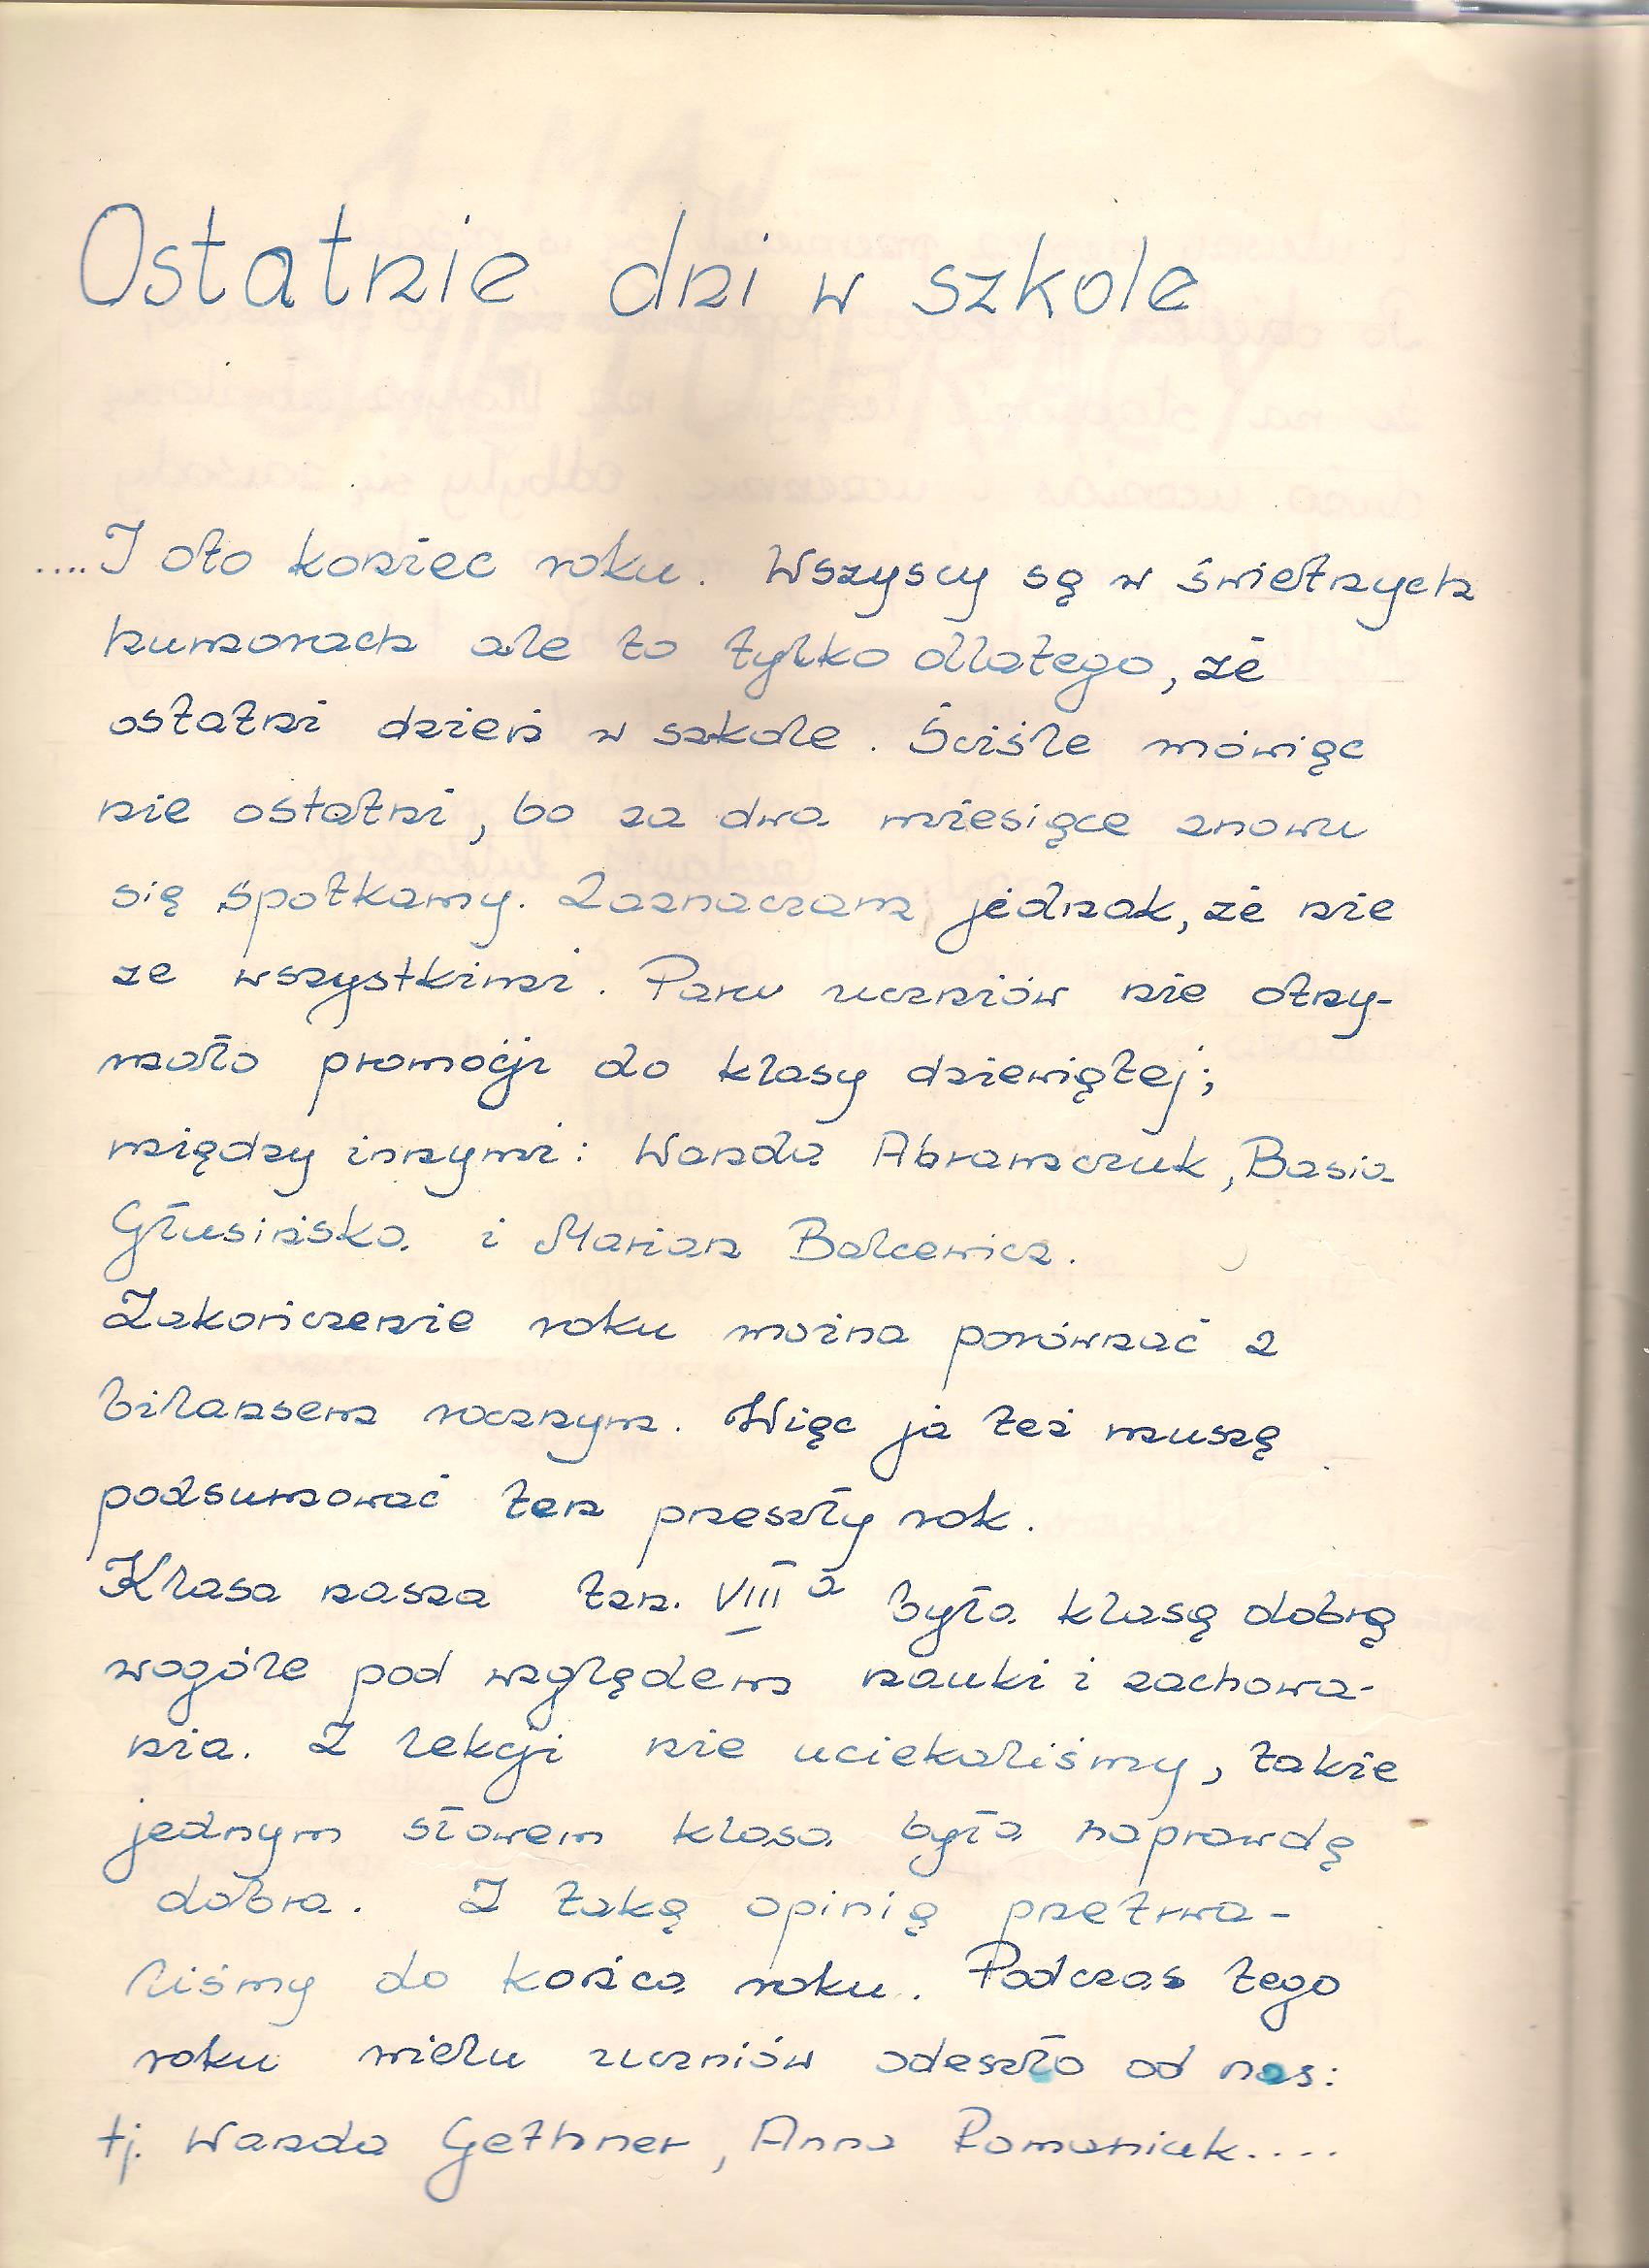 Ostatnie dni w szkole
....I oto koniec roku. Wszyscy są w świetnych
humorach ale to tylko dlatego, że
ostatni dzień w szkole. Ściśle mówiąc
nie ostatni, bo za dwa miesiące znowu
się spotkamy. Zaznaczam jednak, że nie
ze wszystkimi. Paru uczniów nie otrzy-
mało promocji do klasy dziewiątej;
między innymi: Wanda Abramczuk, Basia
Głusińska i Marian Balcewicz.
Zakończenie roku można porównać z
bilansem rocznym. Więc ja też muszę
podsumować ten przeszły rok.
Klasa nasza tzn. VIII a była klasą dobrą
wogóle pod względem nauki i zachowa-
nia. Z lekcji nie uciekaliśmy, takie
jednym słowem klasa była naprawdę
dobra. Z taką opinią przetrwa-
liśmy do końca roku. Podczas tego
roku wielu uczniów odeszło od nas:
tj. Wanda Gethner, Anna Romaniuk....